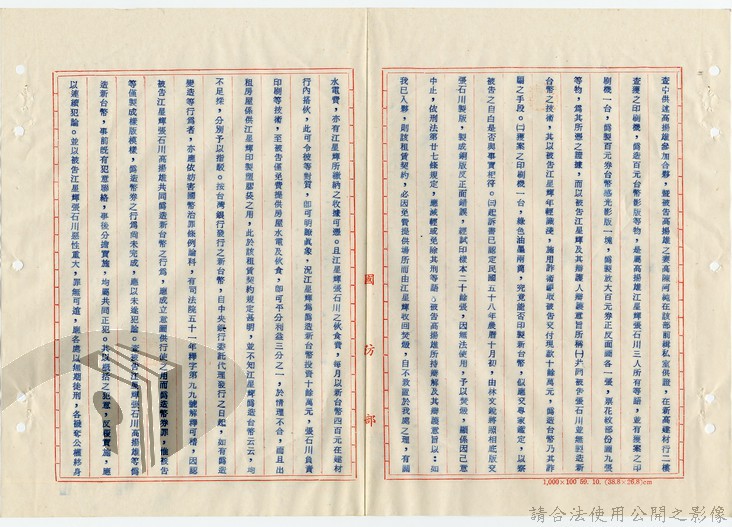 查中供述高揚雄參加合夥，復被告高揚雄之妻高陳河純在該部前緝私室供證，在新高建材行二樓
查獲之印刷機，偽造百元台幣影版等物，是屬高揚雄江星輝張石川三人所有等語，並有獲案之印
刷機一台，偽製百元券台幣感光影版一塊，偽製放大百元券正反面圖各一張，票花紋部份圖九張
等物，為其所憑之證據，而以被告江星輝及其辯護人辯護意旨所稱㈠共同被告張石川並無製造新
台幣之技術，其以被告江星輝年輕識淺，施用詐術
被告交付現款十餘萬元，偽造台幣乃其詐
騙之手段。㈡獲案之印刷機一台，綠色油墨兩筒，究竟能否印製新台幣，似應交專家鑑定，以察
被告之自白是否與事實相符。㈢起訴書已認定民國五十八年農曆十月初，由林文銳將照相底版交
張石川製版，製成銅版反正面錯誤，經試印樣本二十餘張，因無法使用，予以焚燬，顯係因己意
中止，依刑法第廿七條規定，應減輕或免除其刑等語。被告高揚雄所持辯解及其辯護意旨以：如
我已入夥，則該租賃契約，必因免費提供場所而由江星輝收回焚燬，自不致置於我處之理，有關
水電費，亦有江星輝所繳納之收據可憑。且江星輝張石川之伙食費，每月以新台幣四百元在建材
行內搭伙，此可令彼等對質，即可明瞭真象，況江星輝為偽造新台幣投資十餘萬元，張石川負責
印刷等技術，至被告僅免費提供房屋水電及伙食，即可平分利益三分之一，於情理不合，而且出
租房屋係供江星輝印製塑膠袋之用，此於該租賃契約規定甚明，並不知江星輝偽造台幣云云，均
不足採，分別予以指駁。按台灣銀行發行之新台幣，自中央銀行委託代理發行之日起，如有偽造
變造等行為者，亦應依妨害國幣治罪條例論科，有司法院五十一年釋字第九九號解釋可稽，因認
被告江星輝張石川高揚雄共同偽造新台幣之行為，應成立意圖供行使之用而偽造幣券罪，惟被告
等僅製成樣版模樣，偽造幣券之行為尚未完成，應以未遂犯論。查被告江星輝張石川高揚雄等偽
造新台幣，事前既有犯意聯絡，事後分擔實施，均屬共同正犯。其以概括之犯意，反覆實施，應
以連續犯論。並以被告江星輝張石川惡性重大，罪無可逭，應各處以無期徒刑，各褫奪公權終身
國防部
1,000×100 59. 10. (38.8×26.8)cm
請合法使用公開之影像